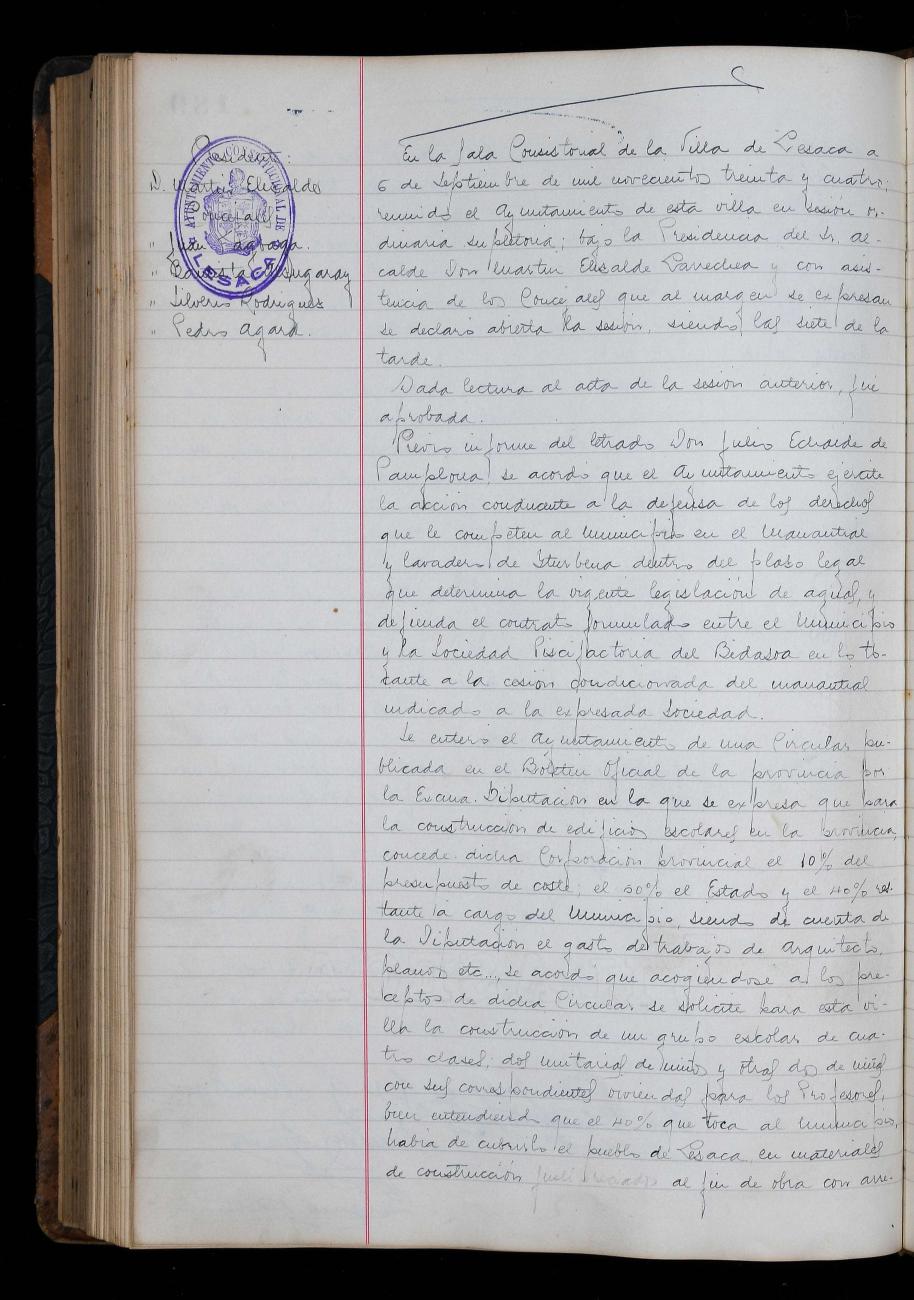 Presidente:
D. Martin Elizalde
Concejales
" Juan
" Bautista
" Silverio Rodriguez
" Pedro Agara.
AYUNTAMIENTO CONSTITUCIONAL DE
LESACA
En la Sala Consistorial de la Villa de Lesaca a
6 de Septiembre de mil novecientos treinta y cuatro;
reunido el Ayuntamiento de esta villa en sesión or-
dinaria supletoria; bajo la Presidencia del Sr. al-
calde Don Martin Elisalde Larrechea y con asis-
tencia de los Concejales que al margen se expresan
se declaró abierta la sesión, siendo las siete de la
tarde.
Dada lectura al acta de la sesión anterior, fué
aprobada.
Previo informe del letrado Don Julio Echaide de
Pamplona se acordó que el Ayuntamiento ejercite
la acción conducente a la defensa de los derechos
que le competen al Municipio en el Manantial
y lavadero de Iturbena dentro del plaso legal
que determina la vigente legislación de aguas, y
defienda el contrato formulado entre el Municipio
y la Sociedad Piscifactoria del Bidasoa en lo to-
cante a la cesión condicionada del manantial
indicado a la expresada Sociedad.
Se enteró el Ayuntamiento de una Circular pu-
blicada en el Boletin Oficial de la provincia por
la Excma. Diputación en la que se expresa que para
la construcción de edificios escolares en la provincia,
concede dicha Corporación provincial el 10% del
presupuesto de coste; el 50% el Estado y el 40% res-
tante a cargo del Municipio, siendo de cuenta de
la Diputación el gasto de trabajos de Arquitecto,
planos etc..., se acordó que acogiéndose a los pre-
ceptos de dicha Circular se solicite para esta vi-
lla la construcción de un grupo escolar de cua-
tro clases; dos unitarias de niños y otras dos de niñas
con sus correspondientes viviendas para los Profesores,
bien entendiendo que el 40% que toca al Municipio,
habia de cubrirlo el pueblo de Lesaca en materiales
de construcción al fin de obra con arre-